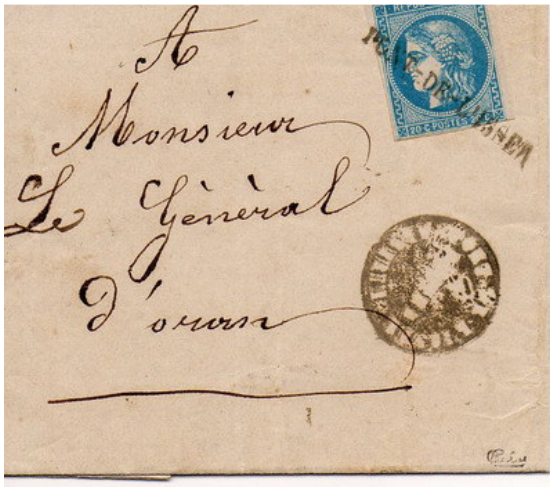 A
Monsieur
Le Général
d'oran
20 C POSTES
PONT-DE-L'ISSER